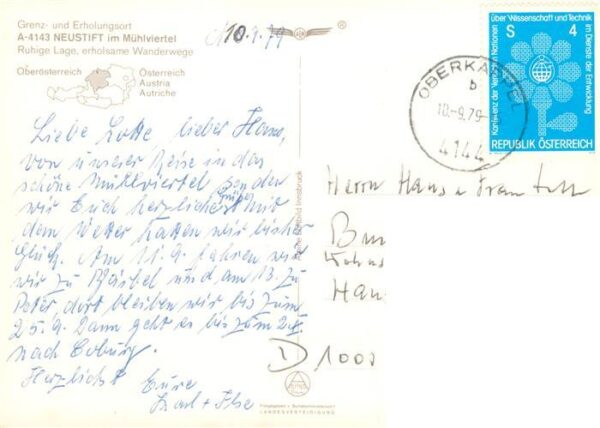 Grenz- und Erholungsort
A-4143 NEUSTIFT im Mühlviertel
Ruhige Lage, erholsame Wanderwege
Oberösterreich
Österreich
Austria
Autriche
10.9.79
Liebe Lotte lieber Hans,
von unserer Reise in das
schöne Mühlviertel senden
wir Euch herzliche Grüße. Mit
dem Wetter hatten wir bisher
Glück. Am 11.9. fahren wir
wir zu Bärbel und am 13. zu
Peter, dort bleiben wir bis zum
25.9. Dann geht es bis zum
nach Coburg.
Herzlichst Eure
Karl + Ilse
OBERKAPPEL
b
10.-9.79
4144
Konferenz der Vereinten Nationen
über Wissenschaft und Technik
im Dienste der Entwicklung
S 4
REPUBLIK ÖSTERREICH
Herrn Hans u Frau
Han
D 1000
Innsbruck
Freigegeben v. Bundesministerium f.
LANDESVERTEIDIGUNG
®